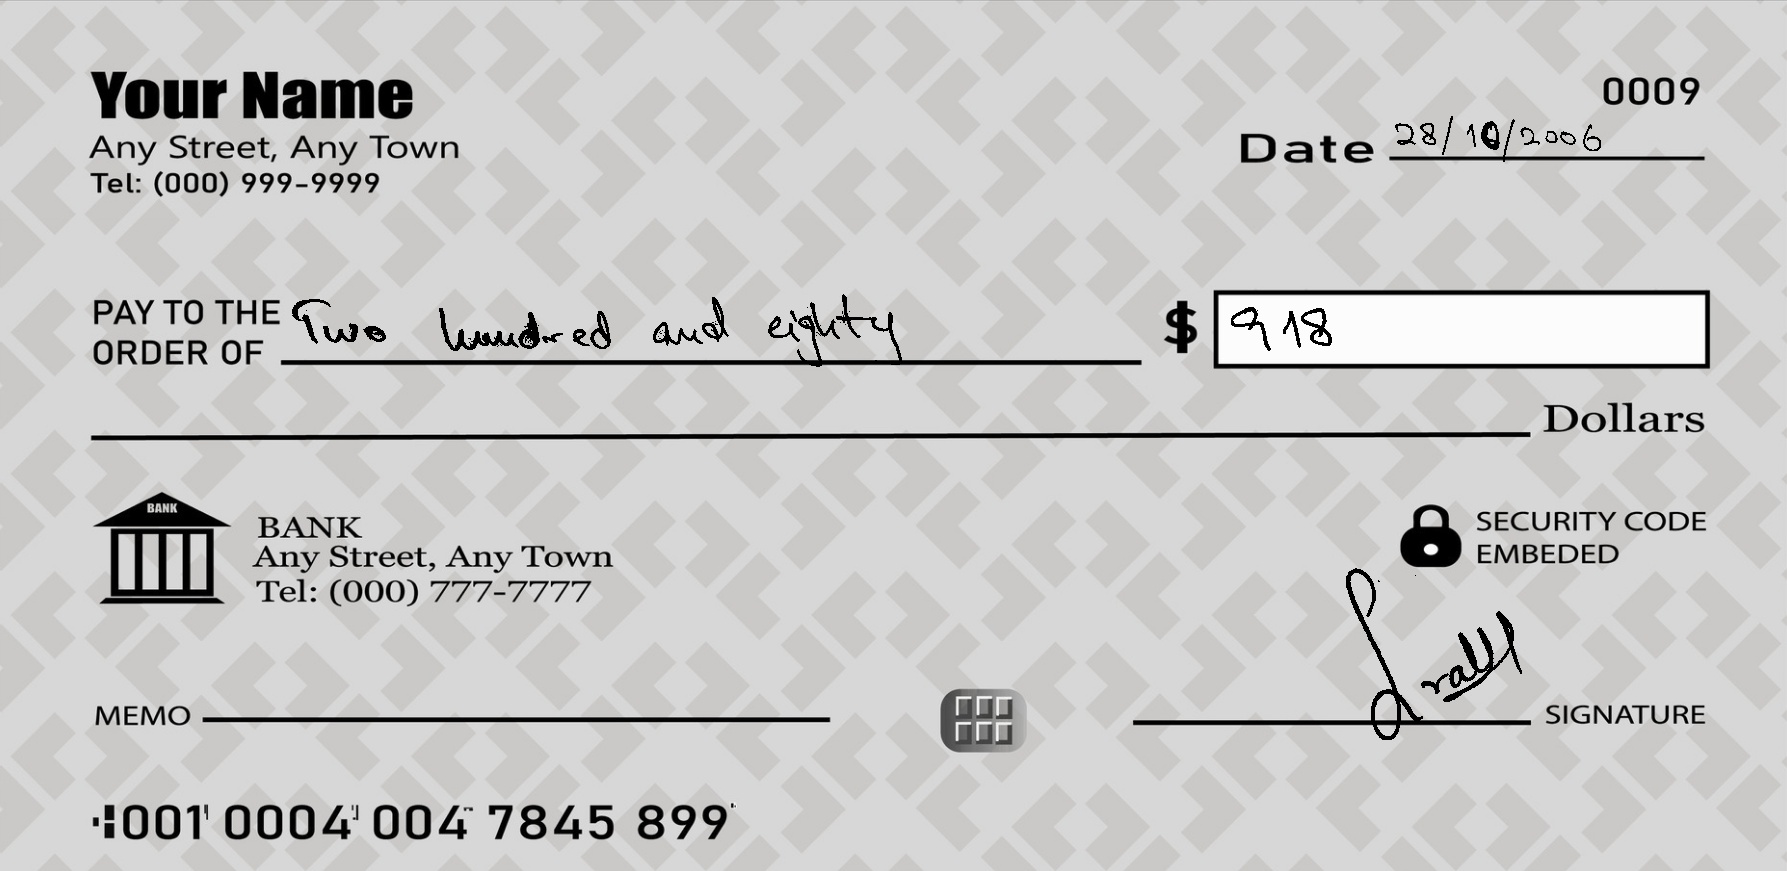 Your Name
0009
Any Street, Any Town
Date 28/10/2006
Tel: (000) 999-9999
PAY TO THE
ORDER OF Two hundred and eighty $ 918
Dollars
BANK
BANK
Any Street, Any Town
Tel: (000) 777-7777
SECURITY CODE
EMBEDED
MEMO
SIGNATURE
001 0004 004 7845 899